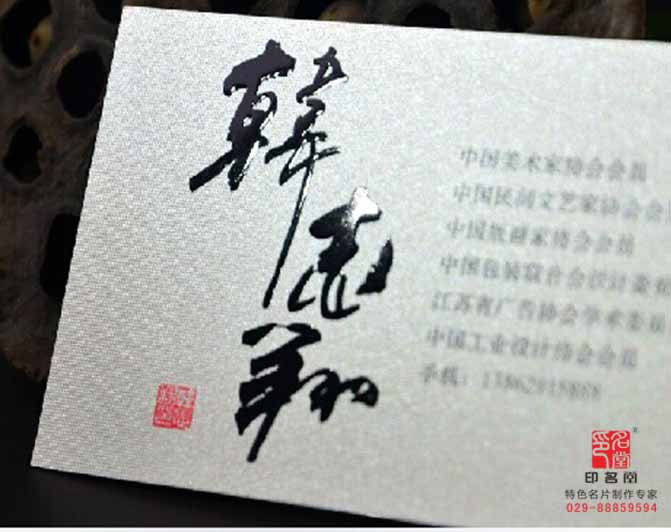 韩志翔
中国美术家协会会员
中国民间文艺家协会会
中国族群家协会会员
中国包装联合会设计委
江苏省广告协会学术委员
中国工业设计协会会员
手机：
名堂
印名阁
特色名片制作专家
029-88859594